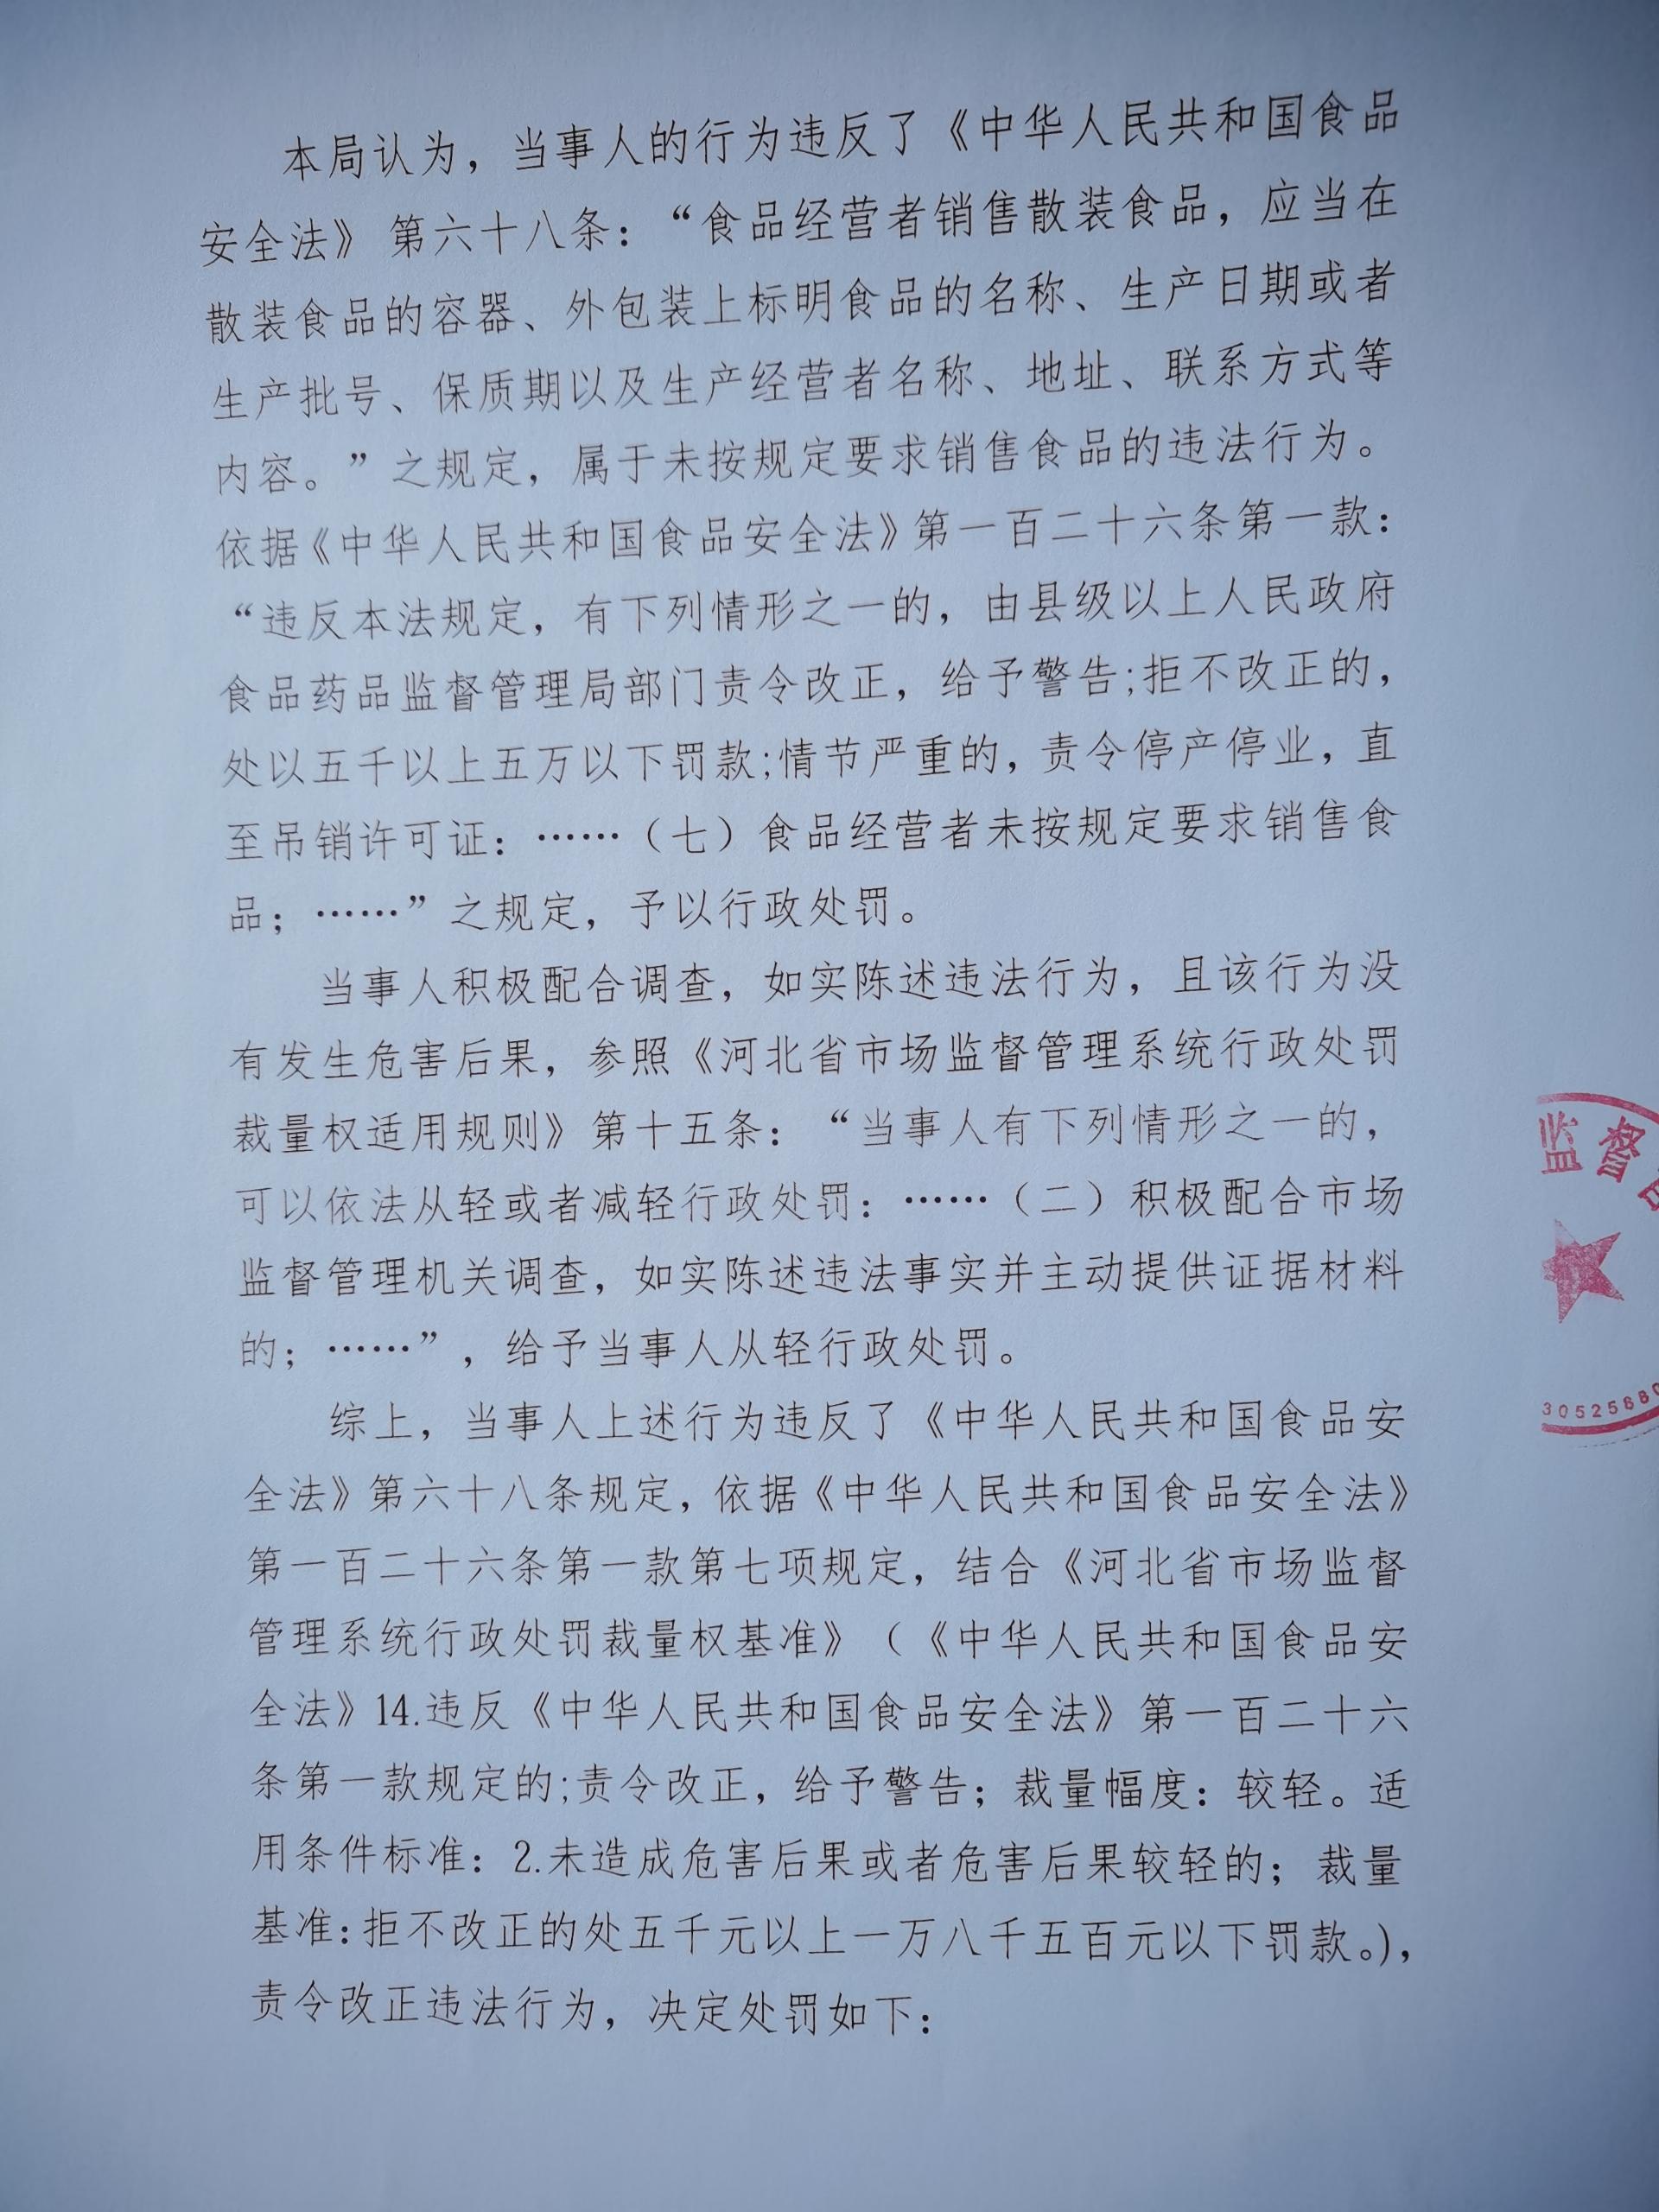 本局认为，当事人的行为违反了《中华人民共和国食品
安全法》第六十八条：“食品经营者销售散装食品，应当在
散装食品的容器、外包装上标明食品的名称、生产日期或者
生产批号、保质期以及生产经营者名称、地址、联系方式等
内容。”之规定，属于未按规定要求销售食品的违法行为。
依据《中华人民共和国食品安全法》第一百二十六条第一款：
“违反本法规定，有下列情形之一的，由县级以上人民政府
食品药品监督管理局部门责令改正，给予警告;拒不改正的，
处以五千以上五万以下罚款;情节严重的，责令停产停业，直
至吊销许可证：……（七）食品经营者未按规定要求销售食
品；……”之规定，予以行政处罚。
当事人积极配合调查，如实陈述违法行为，且该行为没
有发生危害后果，参照《河北省市场监督管理系统行政处罚
裁量权适用规则》第十五条：“当事人有下列情形之一的，
可以依法从轻或者减轻行政处罚：……（二）积极配合市场
监督管理机关调查，如实陈述违法事实并主动提供证据材料
的；……”，给予当事人从轻行政处罚。
综上，当事人上述行为违反了《中华人民共和国食品安
全法》第六十八条规定，依据《中华人民共和国食品安全法》
第一百二十六条第一款第七项规定，结合《河北省市场监督
管理系统行政处罚裁量权基准》（《中华人民共和国食品安
全法》14.违反《中华人民共和国食品安全法》第一百二十六
条第一款规定的;责令改正，给予警告；裁量幅度：较轻。适
用条件标准：2.未造成危害后果或者危害后果较轻的；裁量
基准:拒不改正的处五千元以上一万八千五百元以下罚款。),
责令改正违法行为，决定处罚如下：
监督
3052588